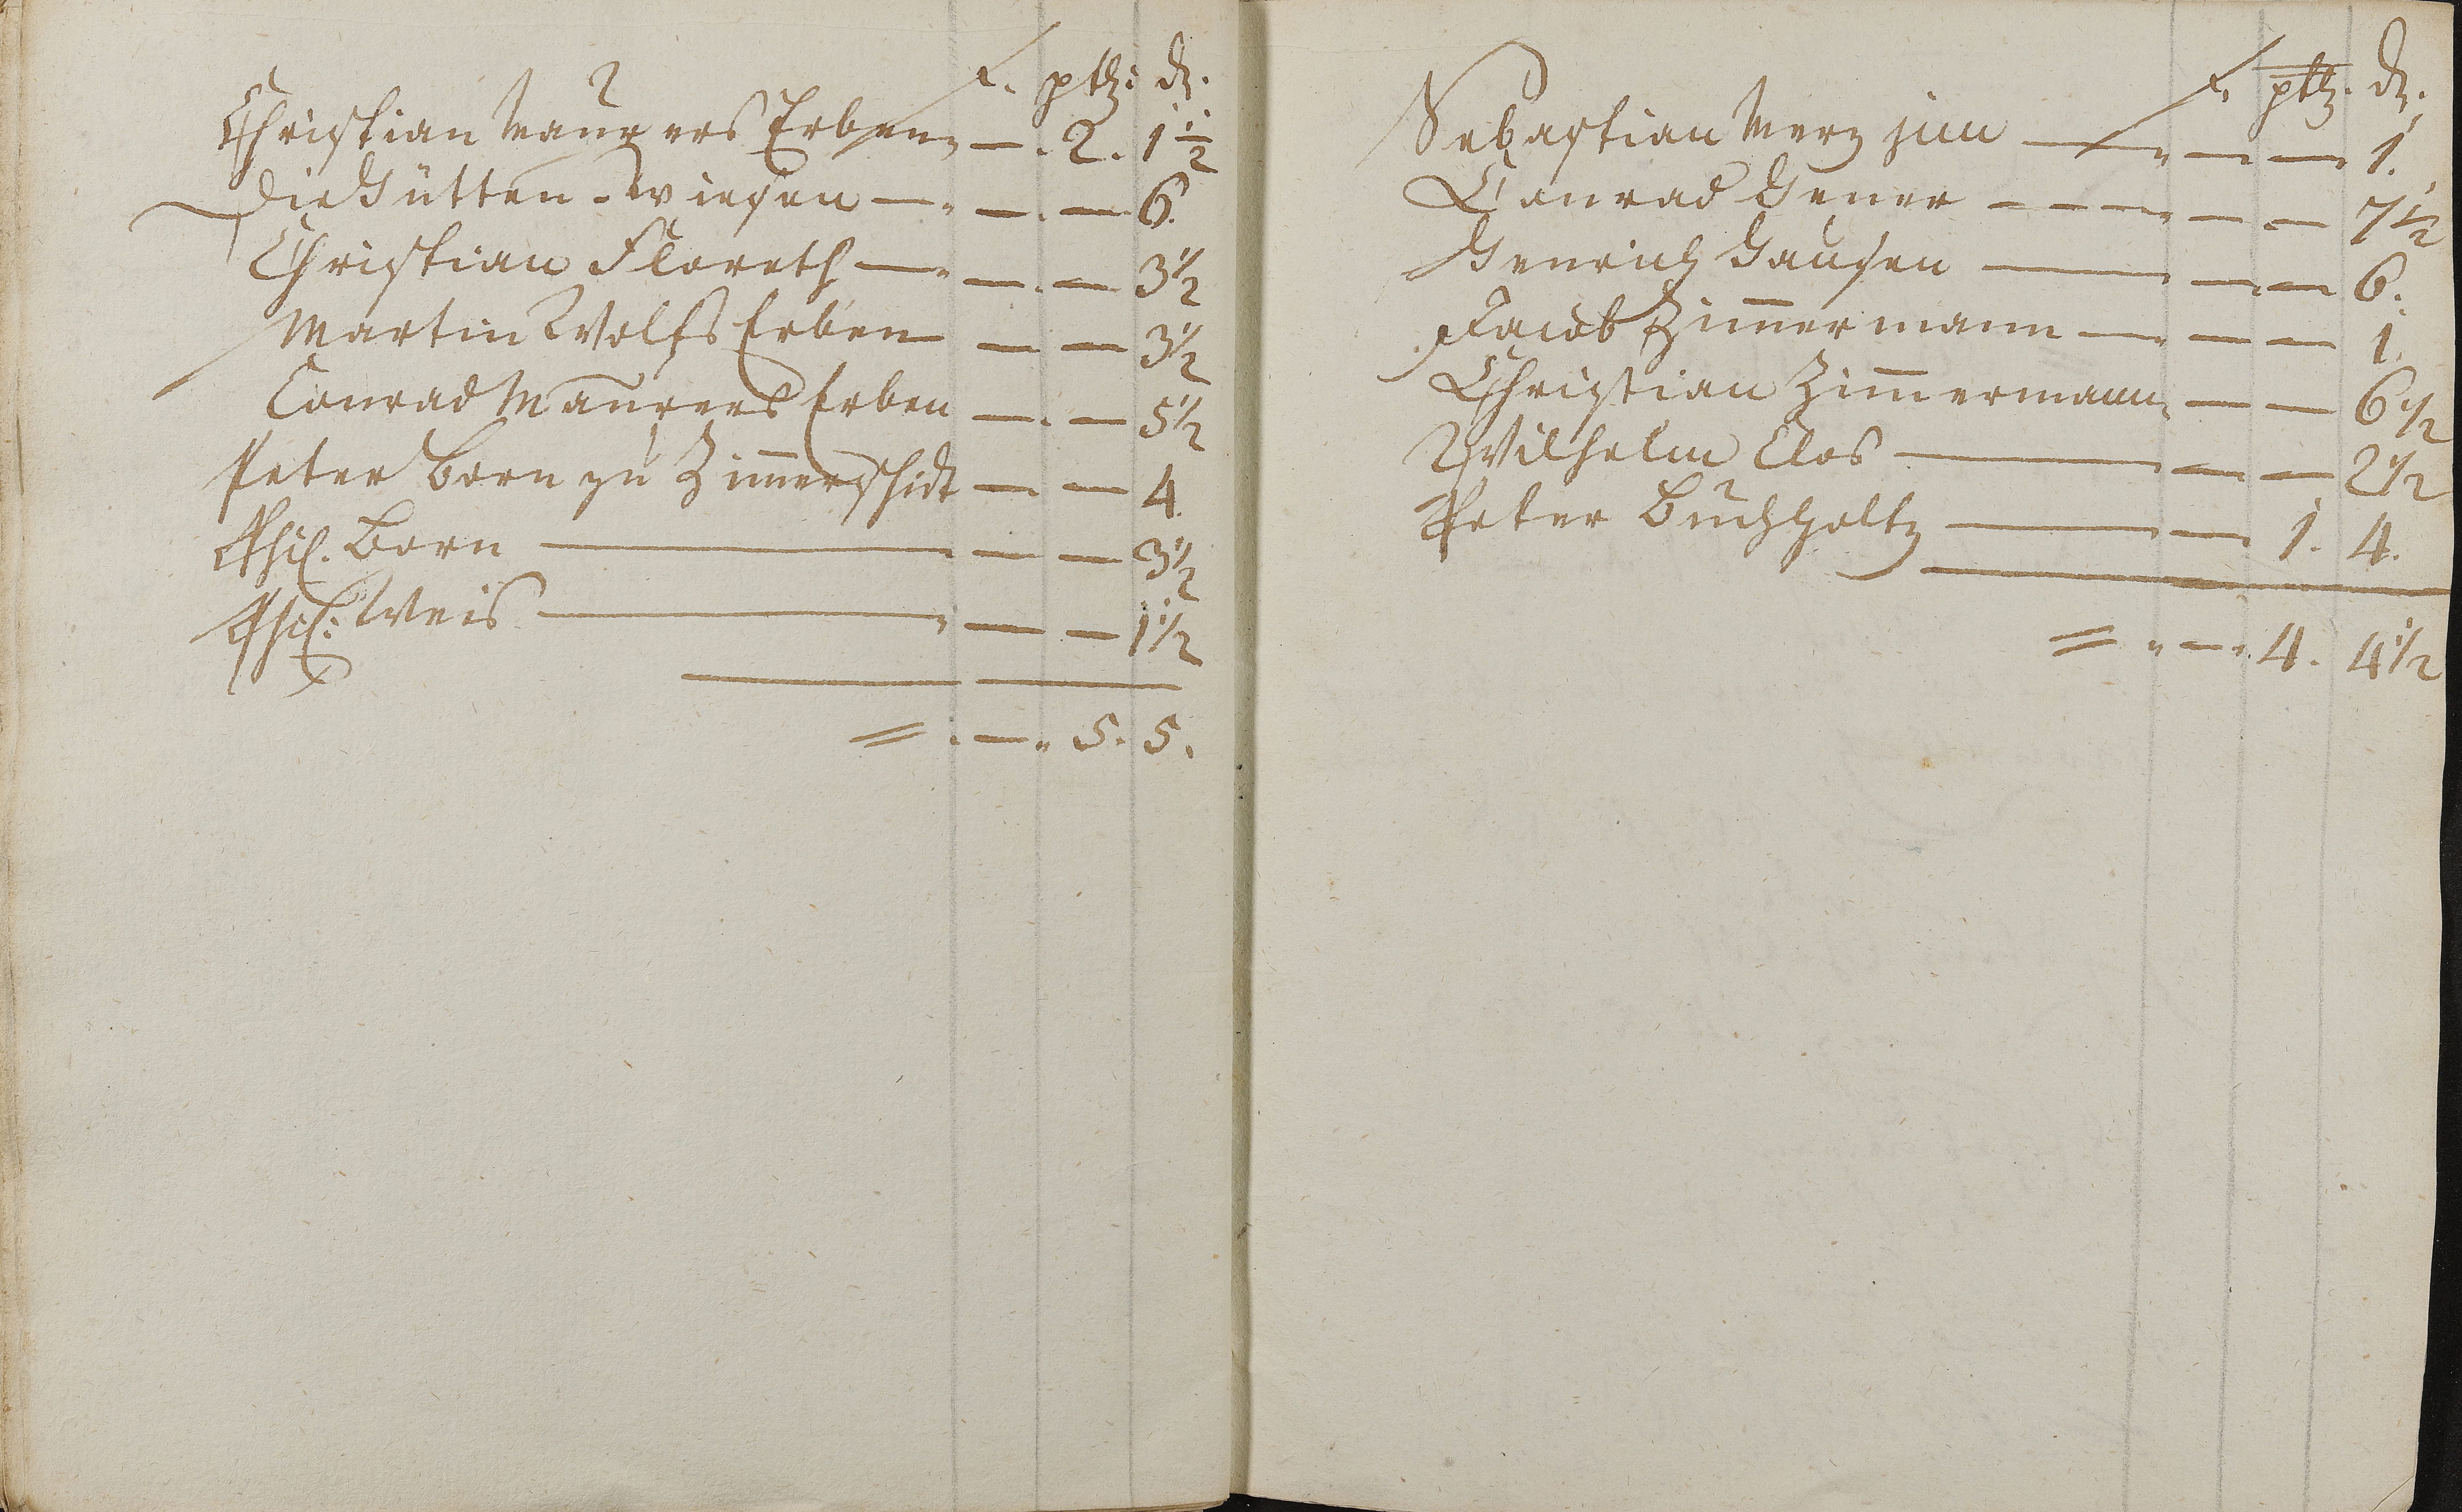 f. ptz: d.
Christian Maurers Erben — 2. 1 1/2
Die Hütten-Wiesen — — — 6.
Christian Floreth — — — 3 1/2
Martin Wolfs Erben — — 3 1/2
Conrad Maurers Erben — — 5 1/2
Peter Born zu Zimmerschidt — — 4.
Phil. Born — — — 3 1/2
Phil: Weis — — — 1 1/2
= — 5. 5.
f. ptz. d.
Sebastian Merz jun — — — 1.
Conrad — — — 7 1/2
Henrich Hausen — — — 6.
Jacob Zimmermann — — — 1.
Christian Zimmermann — — 6 1/2
Wilhelm Clos — — — 2 1/2
Peter Buchholtz — — 1. 4.
= — 4. 4 1/2